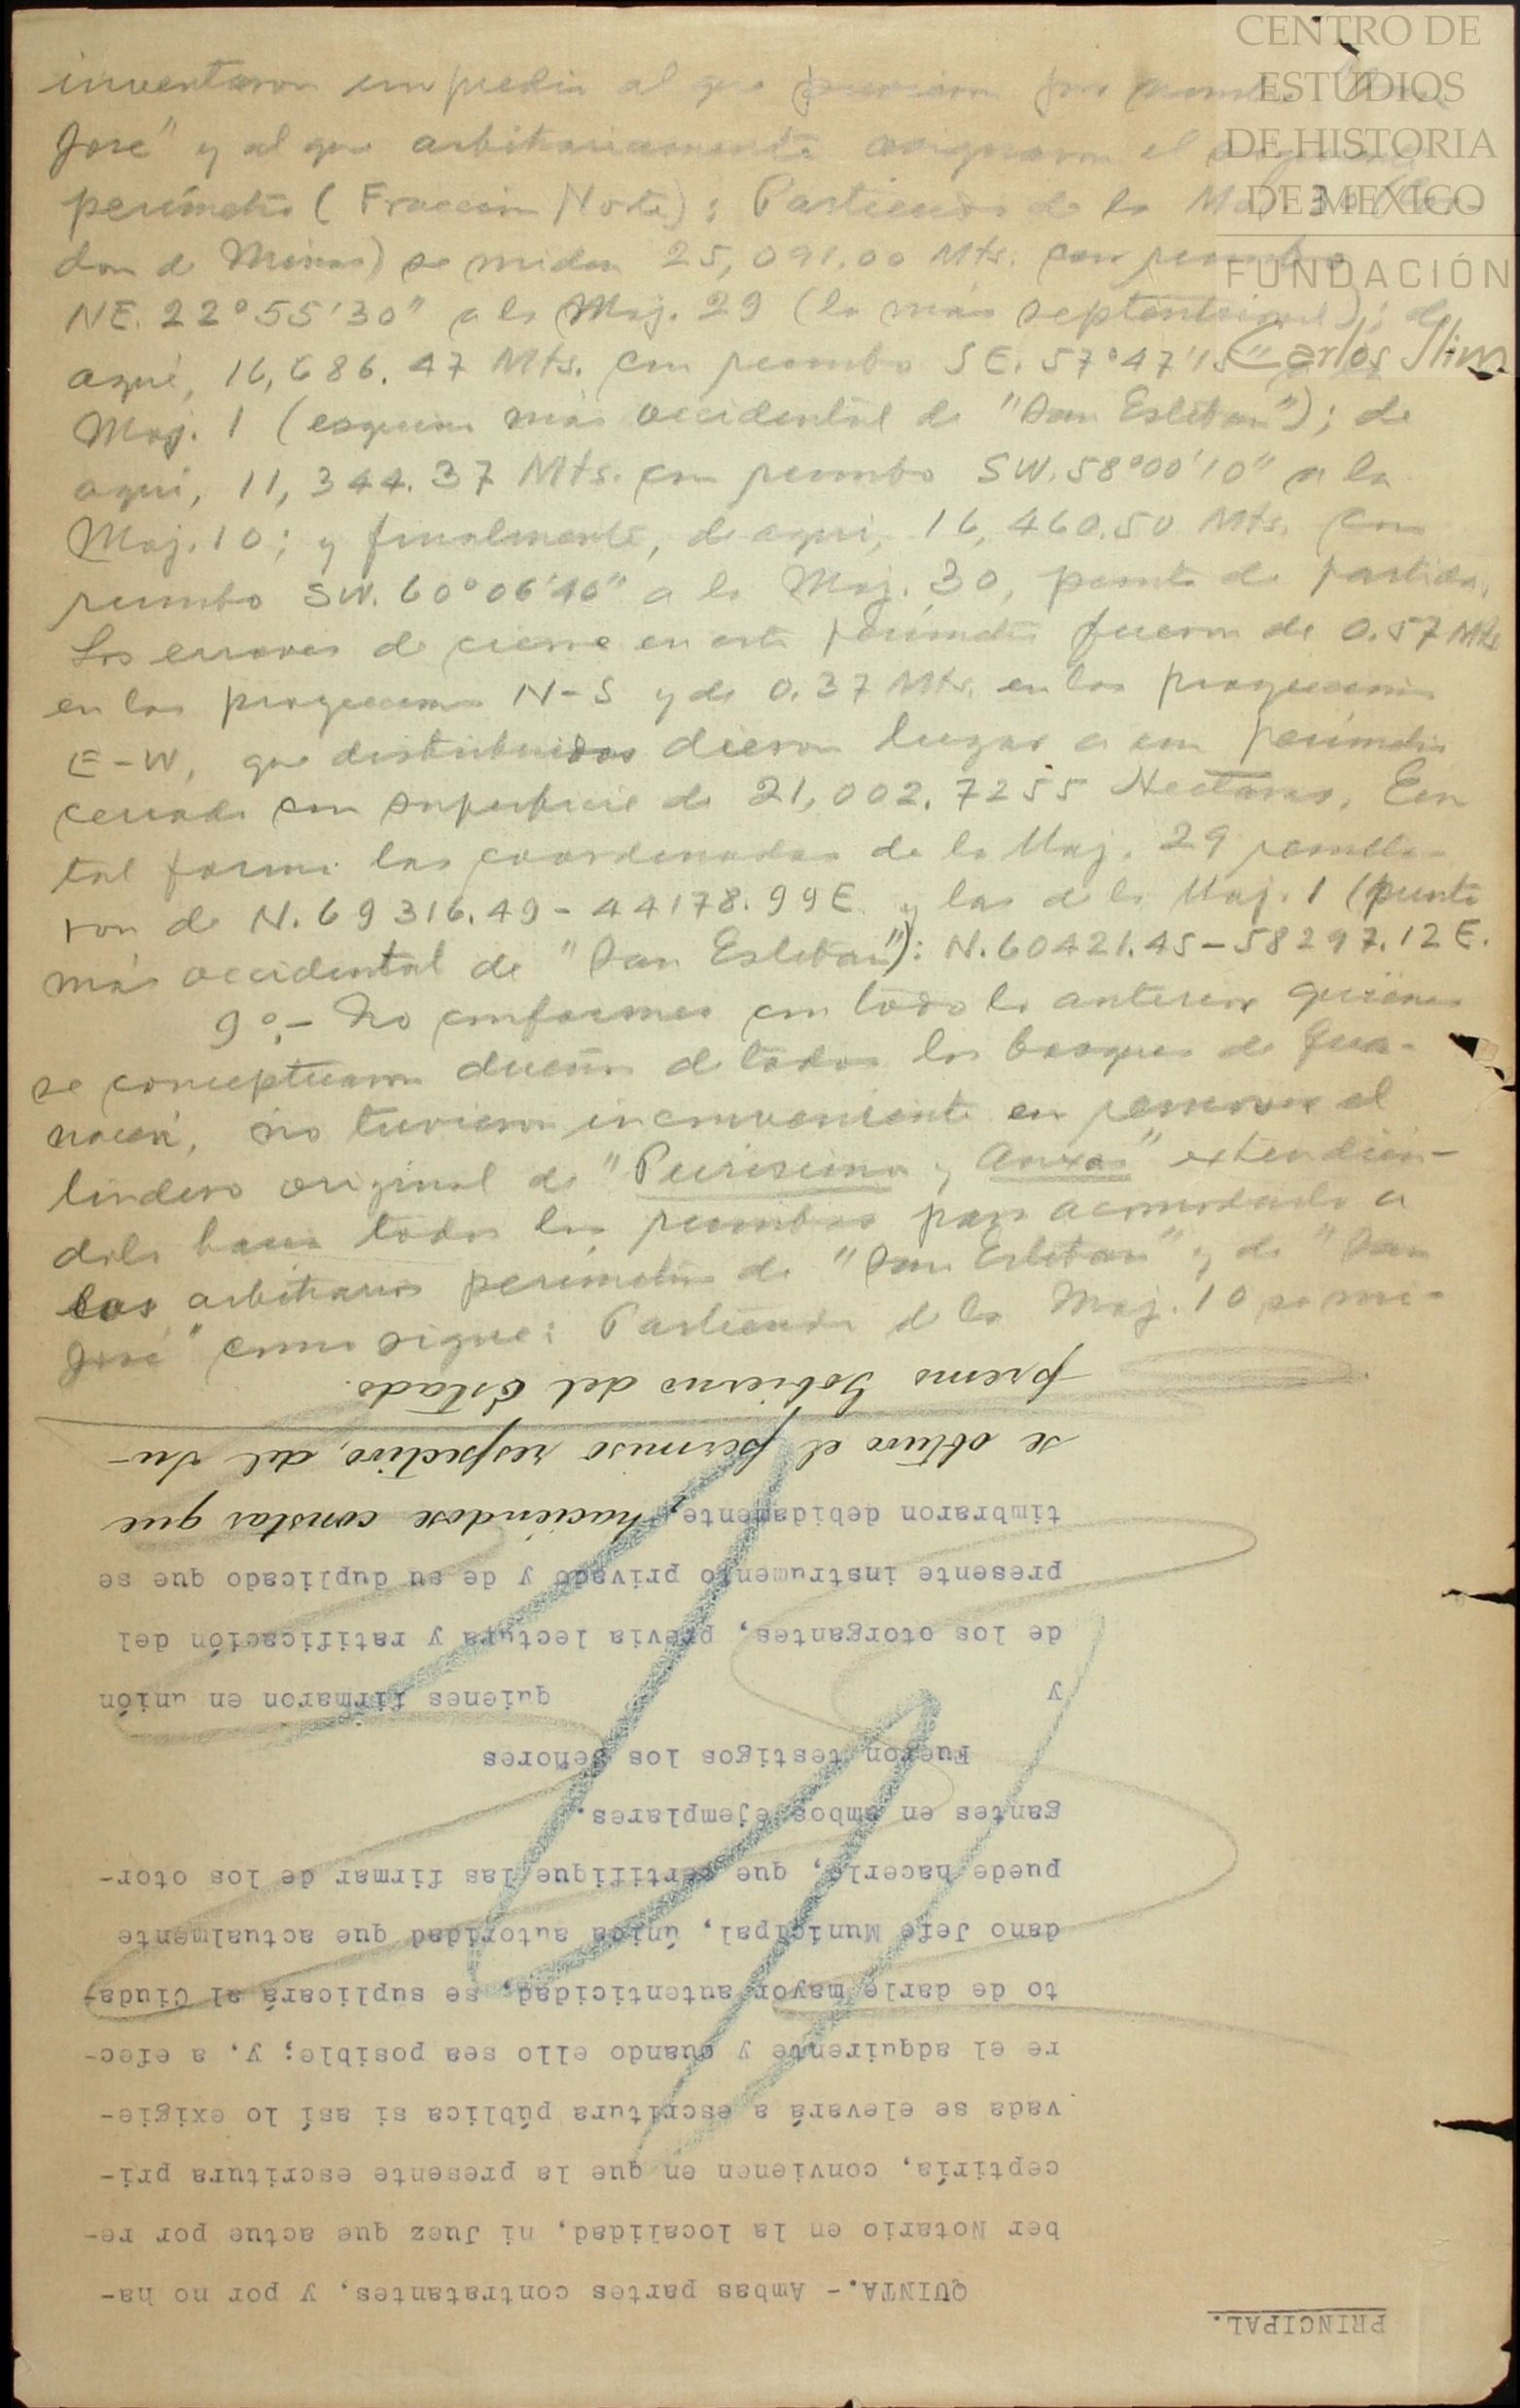 inventaron un predio al que pusieron por nombre
José" y al que arbitrariamente asignaron el
perímetro (Fracción Norte): Partiendo de la Moj. 30
de Minas) se miden 25,091.00 Mts. con rumbo
NE. 22°55'30" a la Moj. 29 (la más septentrional); de
aquí, 16,686.47 Mts. con rumbo SE. 57°47'15"
Moj. 1 (esquina más occidental de "San Esteban"); de
aquí, 11,344.37 Mts. con rumbo SW. 58°00'10" a la
Moj. 10; y finalmente, de aquí, 16,460.50 Mts. con
rumbo SW. 60°06'40" a la Moj. 30, punto de partida.
Los errores de cierre en este perímetro fueron de 0.57 Mts
en las proyecciones N-S y de 0.37 Mts. en las proyecciones
E-W, que distribuidos dieron lugar a un perímetro
cerrado con superficie de 21,002.7255 Hectáras. En
tal forma las coordenadas de la Moj. 29 resulta-
ron de N. 69316.49 - 44178.99 E. y las de la Moj. 1 (punto
más occidental de "San Esteban"): N. 60421.45 - 58297.12 E.
9°.- No conformes con todo lo anterior quienes
se conceptuaron dueños de todos los bosques de Gua-
naceví, no tuvieron inconveniente en remover el
lindero original de "Purísima y Anexas" extendién-
dolo hacia todos los rumbos para acomodarlo a
los arbitrarios perímetros de "San Esteban" y de "San
José" como sigue: Partiendo de la Moj. 10 se mi-
PRINCIPAL.
QUINTA.- Ambas partes contratantes, y por no ha-
ber Notario en la localidad, ni Juez que actue por re-
ceptiría, convienen en que la presente escritura pri-
vada se elevará a escritura pública si así lo exigie-
re el adquirente y cuando ello sea posible; y, a efec-
to de darle mayor autenticidad, se suplicará al Ciuda-
dano Jefe Municipal, única autoridad que actualmente
puede hacerlo, que certifique las firmar de los otor-
gantes en ambos ejemplares.
Fueron testigos los Señores
y quienes firmaron en unión
de los otorgantes, previa lectura y ratificación del
presente instrumento privado y de su duplicado que se
timbraron debidamente, haciéndose constar que
se obtuvo el permiso respectivo, del Su-
premo Gobierno del Estado.
CENTRO DE
ESTUDIOS
DE HISTORIA
DE MEXICO
FUNDACIÓN
Carlos Slim